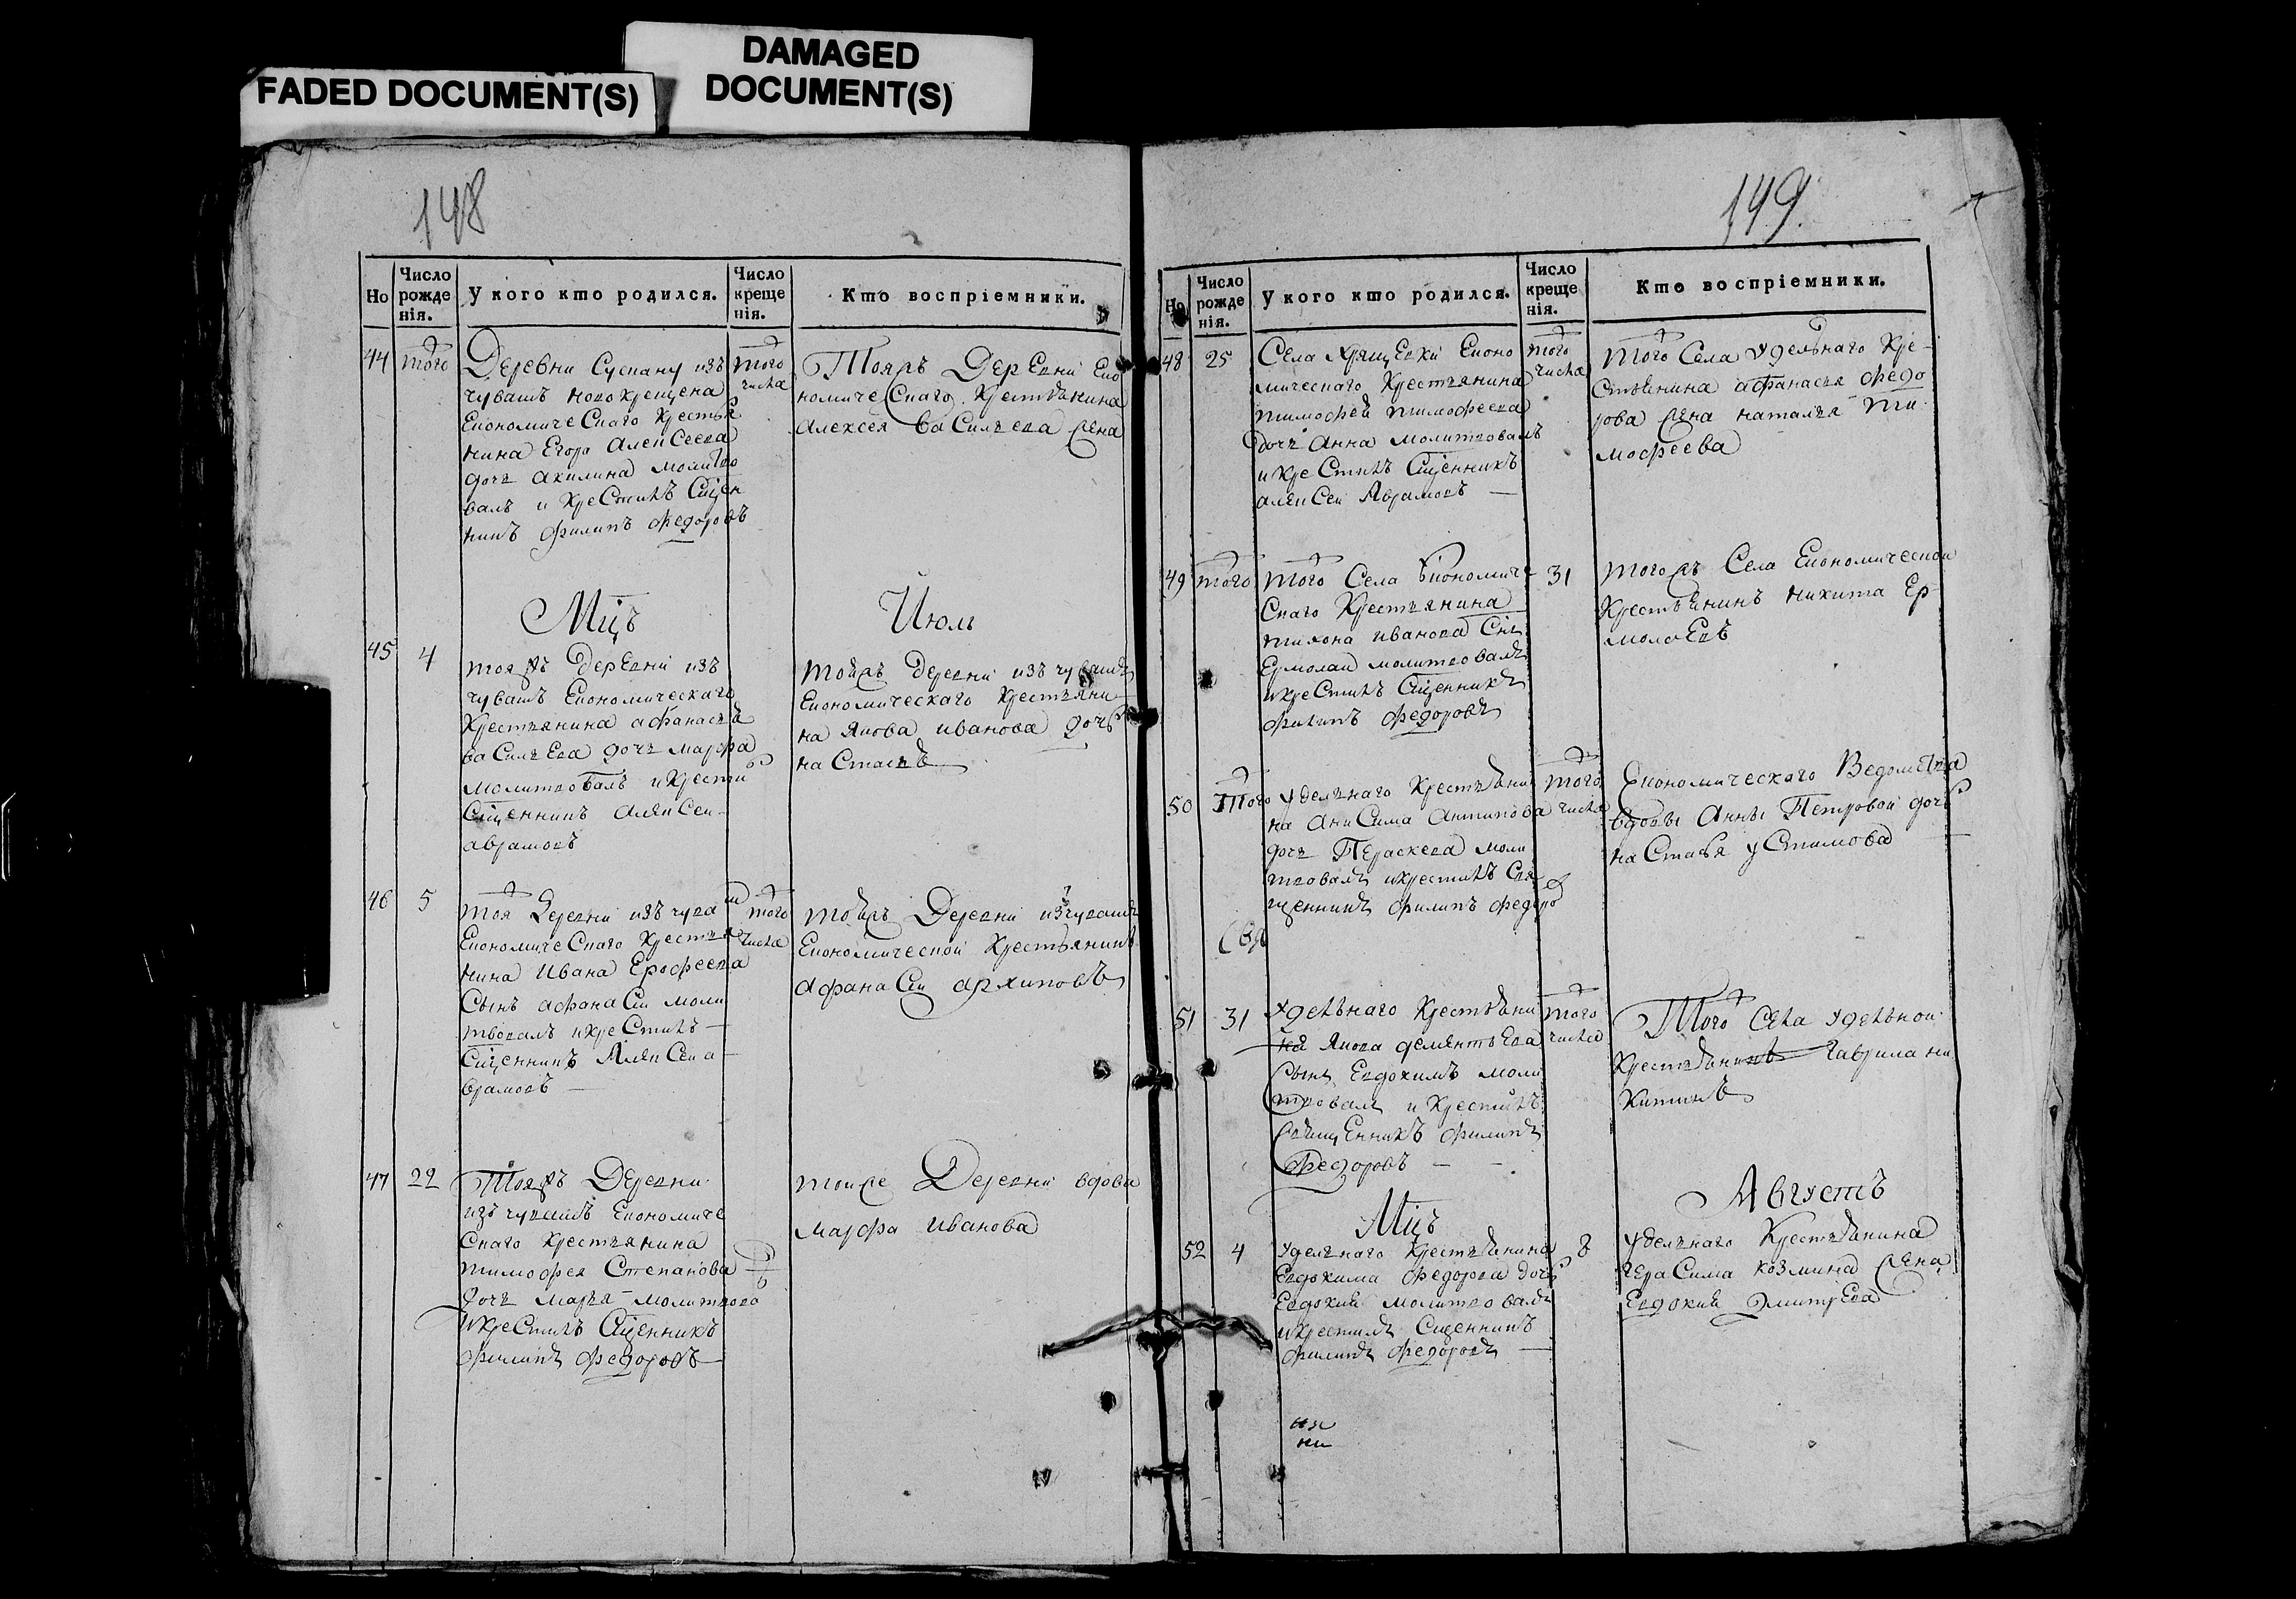 FADED DOCUMENT(S)
DAMAGED
DOCUMENT(S)
148
Но
Число
рожде
нія.
У кого кто родился.
Число
креще
нія.
Кто воспріемники.
44
того
Деревни Сускану изъ
чувашъ новокрещена
Економическаго Крестья
нина Егора Алексеева
дочь Акилина молитво
валъ и Крестилъ Сщен
никъ Филипъ Федоровъ
того
числа
Тояжъ Деревни Еко
номическаго Крестьянина
Алексея Васильева жена
Мцъ
Июль
45
4
тояжъ Деревни изъ
чувашъ Економическаго
Крестьянина Афанасья
Васильева дочь Марфа
молитвовалъ и Крести
Сщенникъ Алексеи
Аврамовъ
тояжъ Деревни изъ чувашъ
Економическаго Крестьяни
на Якова Иванова дочь
46
5
тоя Деревни изъ чува
Економическаго Крестья
нина Ивана Ерофеева
Сынъ Афанасеи моли
твовалъ и Крестилъ
Сщенникъ Алексеи А
врамовъ
того
числа
тояжъ Деревни изъ чувашъ
Економической Крестьянинъ
Афанасеи Архиповъ
47
22
Тояжъ Деревни
изъ чувашъ Економиче
скаго Крестьянина
Тимофея Степанова
дочь Марья молитвова
и Крестилъ Сщенникъ
Филипъ Федоровъ
тоиже Деревни вдова
Марфа Иванова
149.
Но
Число
рожде
нія.
У кого кто родился.
Число
креще
нія.
Кто воспріемники.
48
25
Села Хрящевки Еконо
мическаго Крестьянина
Тимофеи Тимофеева
дочь Анна молитвовалъ
и Крестилъ Сщенникъ
Алексеи Аврамовъ
того
числа
того Села удельнаго Кре
стьянина Афанасья Федо
рова жена Наталья Ти
мофеева
49
того
того Села Економиче
скаго Крестьянина
Тихона Иванова Снъ
Ермолаи молитвовалъ
и Крестилъ Сщенникъ
Филипъ Федоровъ
31
тогожъ Села Економической
Крестьянинъ Никита Ер
молаевъ
50
Того
удельнаго Крестьяни
на Анисима Антипова
дочь Параскева моли
твовалъ и крестилъ Свя
щенникъ Филипъ Федоро
того
числа
Економическаго Ведомства
вдовы Анны Петровой дочь
Настасья Устимова
51
31
удельнаго Крестьяни
на Якова Дементьева
Сынъ Евдокимъ моли
твовалъ и Крестилъ
Священникъ Филипъ
Федоровъ
того
числа
Того Села удельной
Крестьянинъ Гаврила Ни
китинъ
Мцъ
Августъ
52
4
удельнаго Крестьянина
Евдокима Федорова дочь
Евдокия молитвовалъ
и крестилъ Сщенникъ
Филипъ Федоровъ
8
удельнаго Крестьянина
Герасима Козмина жена
Евдокия Дмитрева